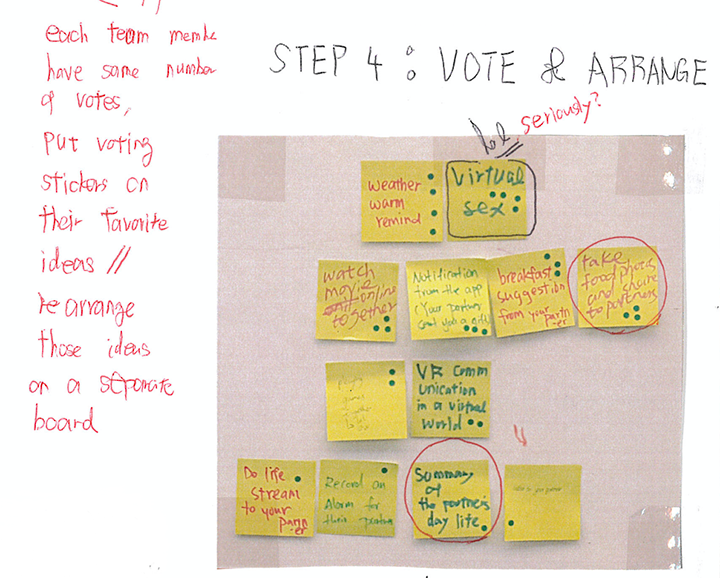 each team membe
have same number
of votes,
put voting
stickers on
their favorite
ideas //
rearrange
those ideas
on a separate
board
STEP 4 : VOTE & ARRANGE
lol, seriously?
weather
warm
remind
Virtual
sex
watch
movie
online
together
Notification
from the app
(Your partner
sent you a
breakfast
suggestion
from your partn
er
take
food photos
and share
to partners
VR Comm
unication
in a virtual
world
Do life
stream
to your
partn
er
Record an
Alarm for
their partner
Summary
of
the partner's
day life